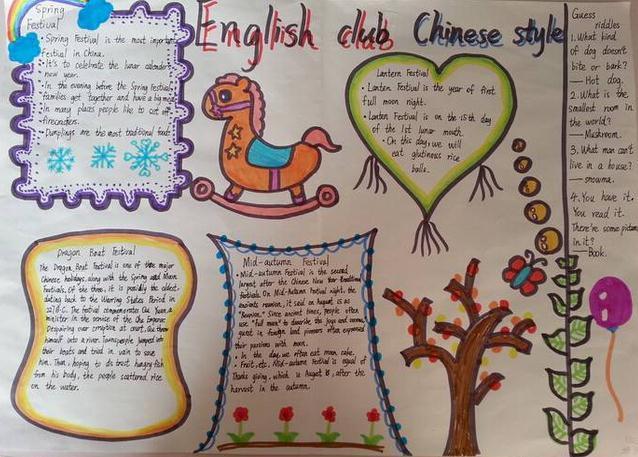 English club Chinese style
Spring
Festival
• Spring Festival is the most important
festival in China.
• It's to celebrate the lunar calendar
new year.
• In the evening before the Spring Festival
families get together and have a big meal
• In many places people like to set off
firecrackers.
• Dumplings are the most traditional food
Lantern Festival
• Lantern Festival is the year of first
full moon night.
• Lantern Festival is on the 15th day
of the 1st lunar mouth.
• On this day, we will
eat glutinous rice
balls.
Guess
riddles
1. What kind
of dog doesn't
bite or bark?
— Hot dog.
2. What is the
smallest room in
the world?
— Mushroom.
3. What man can't
live in a house?
— snowma.
4. You have it.
You read it.
There're some pictures
in it?
— Book.
Dragon Boat Festival
The Dragon Boat Festival is one of three major
Chinese holidays, along with the Spring and Moon
Festivals. Of the three, it is possibly the oldest,
dating back to the Warring States Period in
227 B.C. The festival commemorates Qu Yuan, a
minister in the service of the Chu Emperor.
Despairing over corruption at court, Qu threw
himself into a river. Townspeople jumped into
their boats and tried in vain to save
him. Then, hoping to distract hungry fish
from his body, the people scattered rice
on the water.
Mid-autumn Festival
• Mid-autumn Festival is the second
largest after the Chinese New Year
festivals. On Mid-Autumn Festival night, the
ancients reunion, it said on August 15 as
"Reunion." Since ancient times, people often
use "full moon" to describe the joys and sorrows,
guest in foreign land pioneers often expressed
their passions with moon.
• In the day, we often eat moon cake,
• Fruit, etc. Mid-autumn Festival is equal of
Thanks giving, which is August 15, after the
harvest in the autumn.